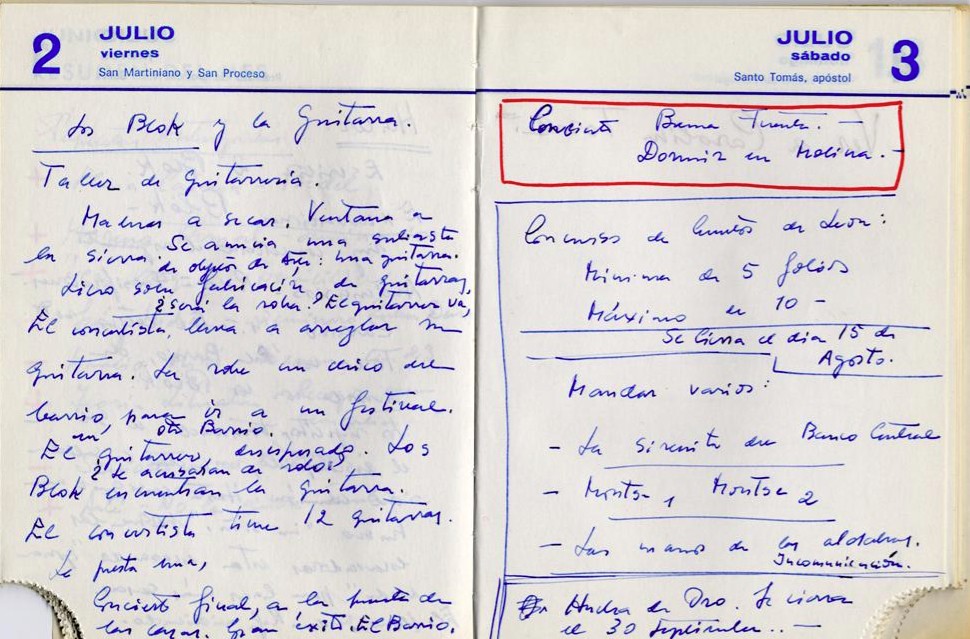 2 JULIO
viernes
San Martiniano y San Proceso
Los Blok y la Guitarra.
Taller de guitarrería.
Maderas a secar. Ventana a
la sierra. Se anuncia una subasta
de objetos de : una guitarra.
Libro sobre fabricación de guitarras,
¿será la roba? El guitarrero va,
El concertista lleva a arreglar su
guitarra. La roba un chico del
barrio, para ir a un festival.
en otro Barrio.
El guitarrero, desesperado. Los
¿le acusaban de robo?
Blok encuentran la guitarra.
El concertista tiene 12 guitarras.
Le presta una,
Concierto final, a la puerta de
las casas. Gran éxito. El Barrio.
JULIO 3
sábado
Santo Tomás, apóstol
Buena Fuente.
Dormir en Molina.
Concurso de Cuentos de León:
Mínimo de 5 folios
Máximo de 10 -
Se cierra el día 15 de
Agosto.
Mandar varios:
- La Sirenita del Banco Central
- Montse 1 Montse 2
- Las manos de las aldabas.
Incomunicación.
Hucha de Oro. Se cierra
el 30 Septiembre.